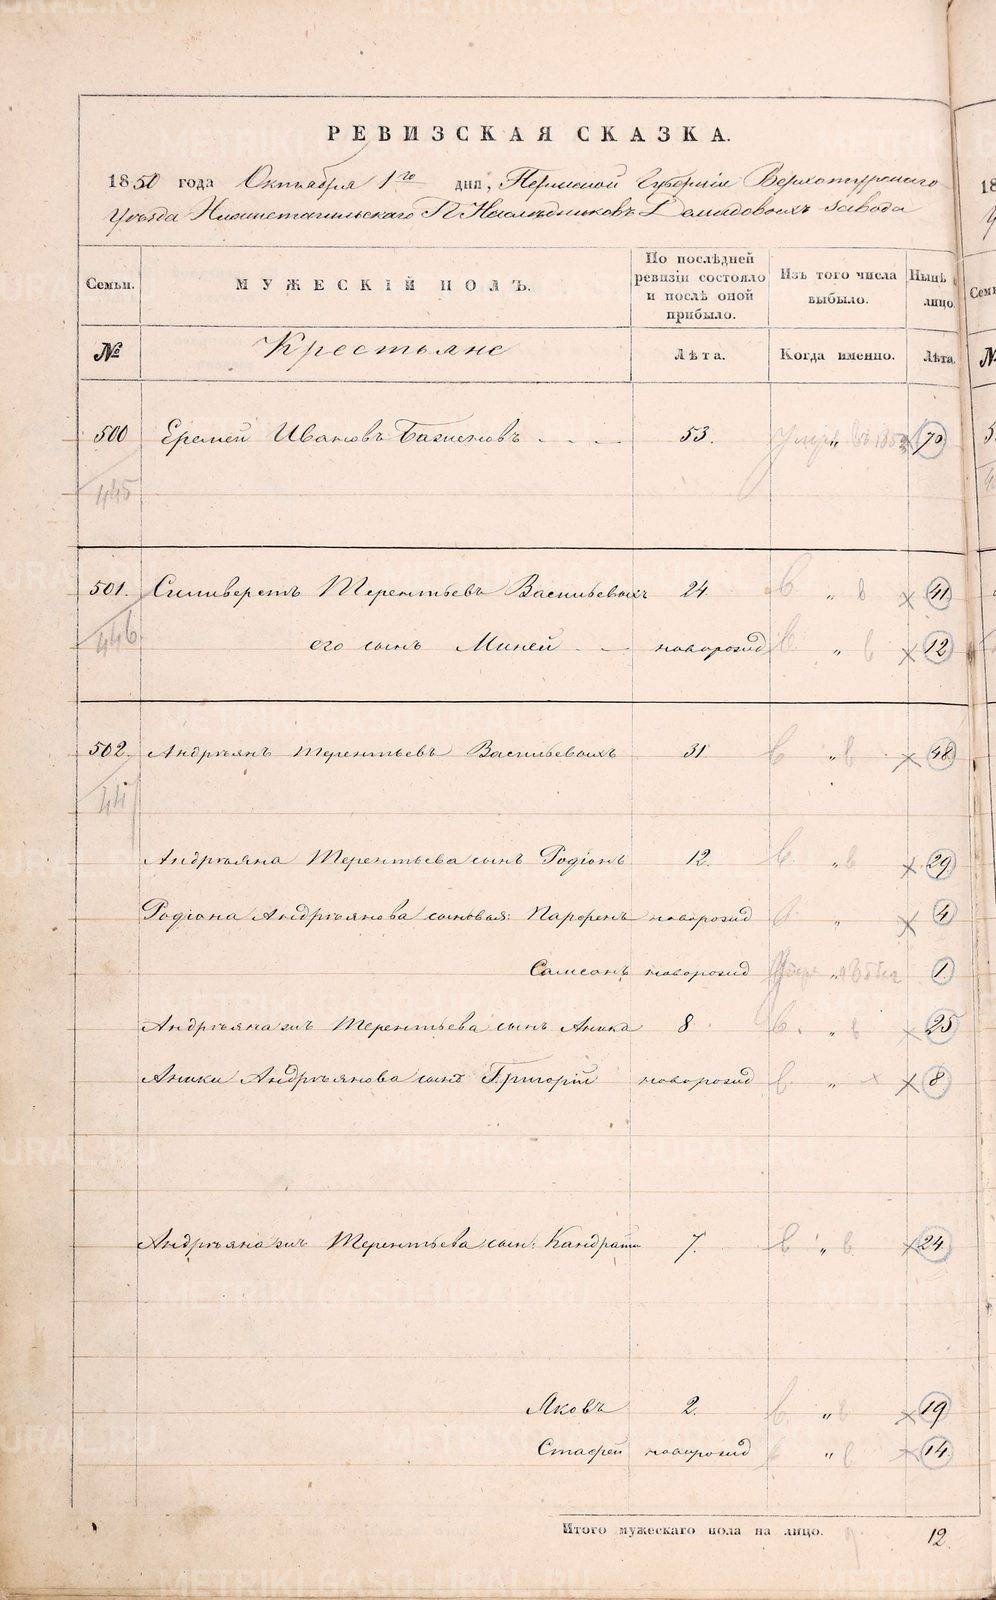 РЕВИЗСКАЯ СКАЗКА.
1850 года Октября 1го дня, Пермской Губернiи Верхотурскаго
Уѣзда Нижнетагильскаго Г.г. Наслѣдниковъ Демидовыхъ завода
Семьи. МУЖЕСКIЙ ПОЛЪ. По послѣдней ревизiи состояло и послѣ оной прибыло. Изъ того числа выбыло. Нынѣ лицо.
№ Крестьяне Лѣта. Когда именно. Лѣта.
500 Еремей Ивановъ Баженовъ 53. 70
445
501. Сильверстъ Терентьевъ Васильевыхъ 24 " 41
446 его сынъ Миней новорожд " 12
502. Андреянъ Терентьевъ Васильевыхъ 31. " 48
447
Андреяна Терентьева сынъ Родiонъ 12. " 29
Родiона Андреянова сыновья: Парфенъ новорожд " 4
Самсонъ новорожд " 1
Андреяна жъ Терентьева сынъ Аника 8 " 25
Аники Андреянова сынъ Григорiй новорожд " 8
Андреяна жъ Терентьева сын: Кандратiй 7. " 24
Яковъ 2. " 19
Стафей новорожд " 14
Итого мужескаго пола на лицо. 12
METRIKI.GASO-URAL.RU